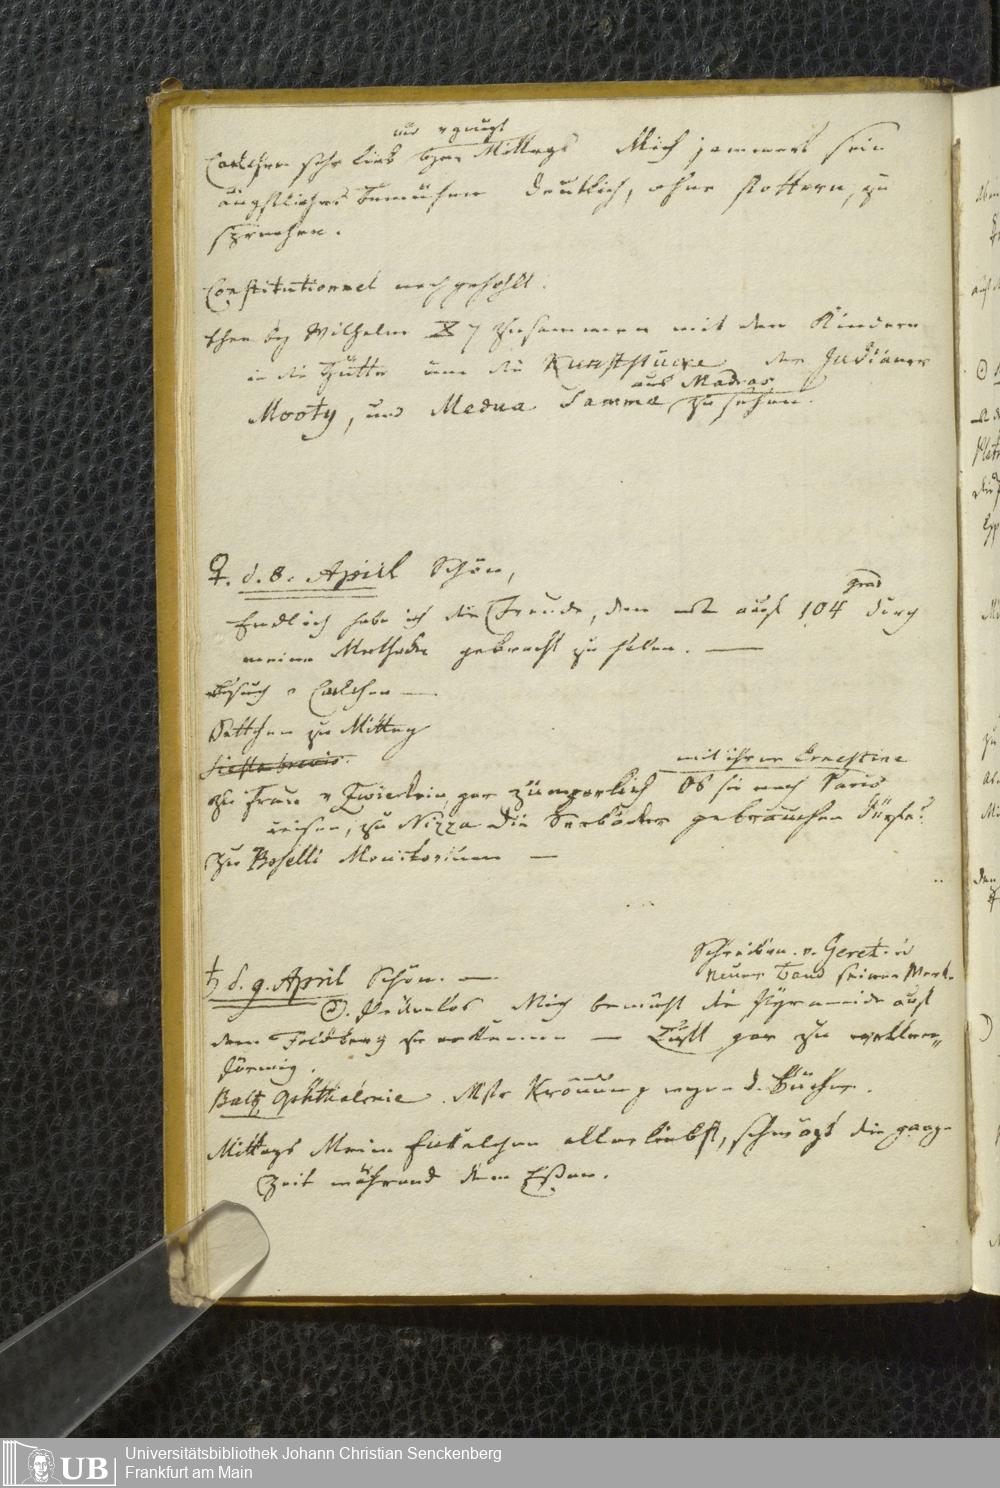 und vergnügt
Carlchen sehr lieb bey Mittags Mich jammert sein
ängstliches Bemühen deutlich, ohne stottern, zu
sprechen.
Constitutionnel nachgeholt.
Thee by Wilhelm 7 zusammen mit den Kindern
in die Hütte um die Kunststücke der Indianer
aus Madras
Mooty, und Medua Samme zu sehen.
♀. d. 8. April Schön,
grad
Endlich habe ich die Freude, den auf 104 durch
meine Methode gebracht zu sehen. —
Besuch v Carlchen —
Bettchen zu Mittag
Siesta brevis.
mit ihrer Ernestine
Zu Frau v Zwierlein, gar zümperlich Ob sie nach Paris
reisen, zu Nizza die Seebäder gebrauchen dürfe?
Zu Boselli Monitorium —
♄ d. 9. April Schön. —
Schreiben. v. Geret. u
neuer Band seiner Werk.
Mich bemüht die Pyramide auf
dem Feldberg zu erkennen — Luft gar zu
förmig.
Baltz Ophthalmie. Mste Krönung wegen d. Bücher.
Mittags Mein Enkelchen allerliebst, schwäzt die ganze
Zeit während dem Eßen.
UB
Universitätsbibliothek Johann Christian Senckenberg
Frankfurt am Main